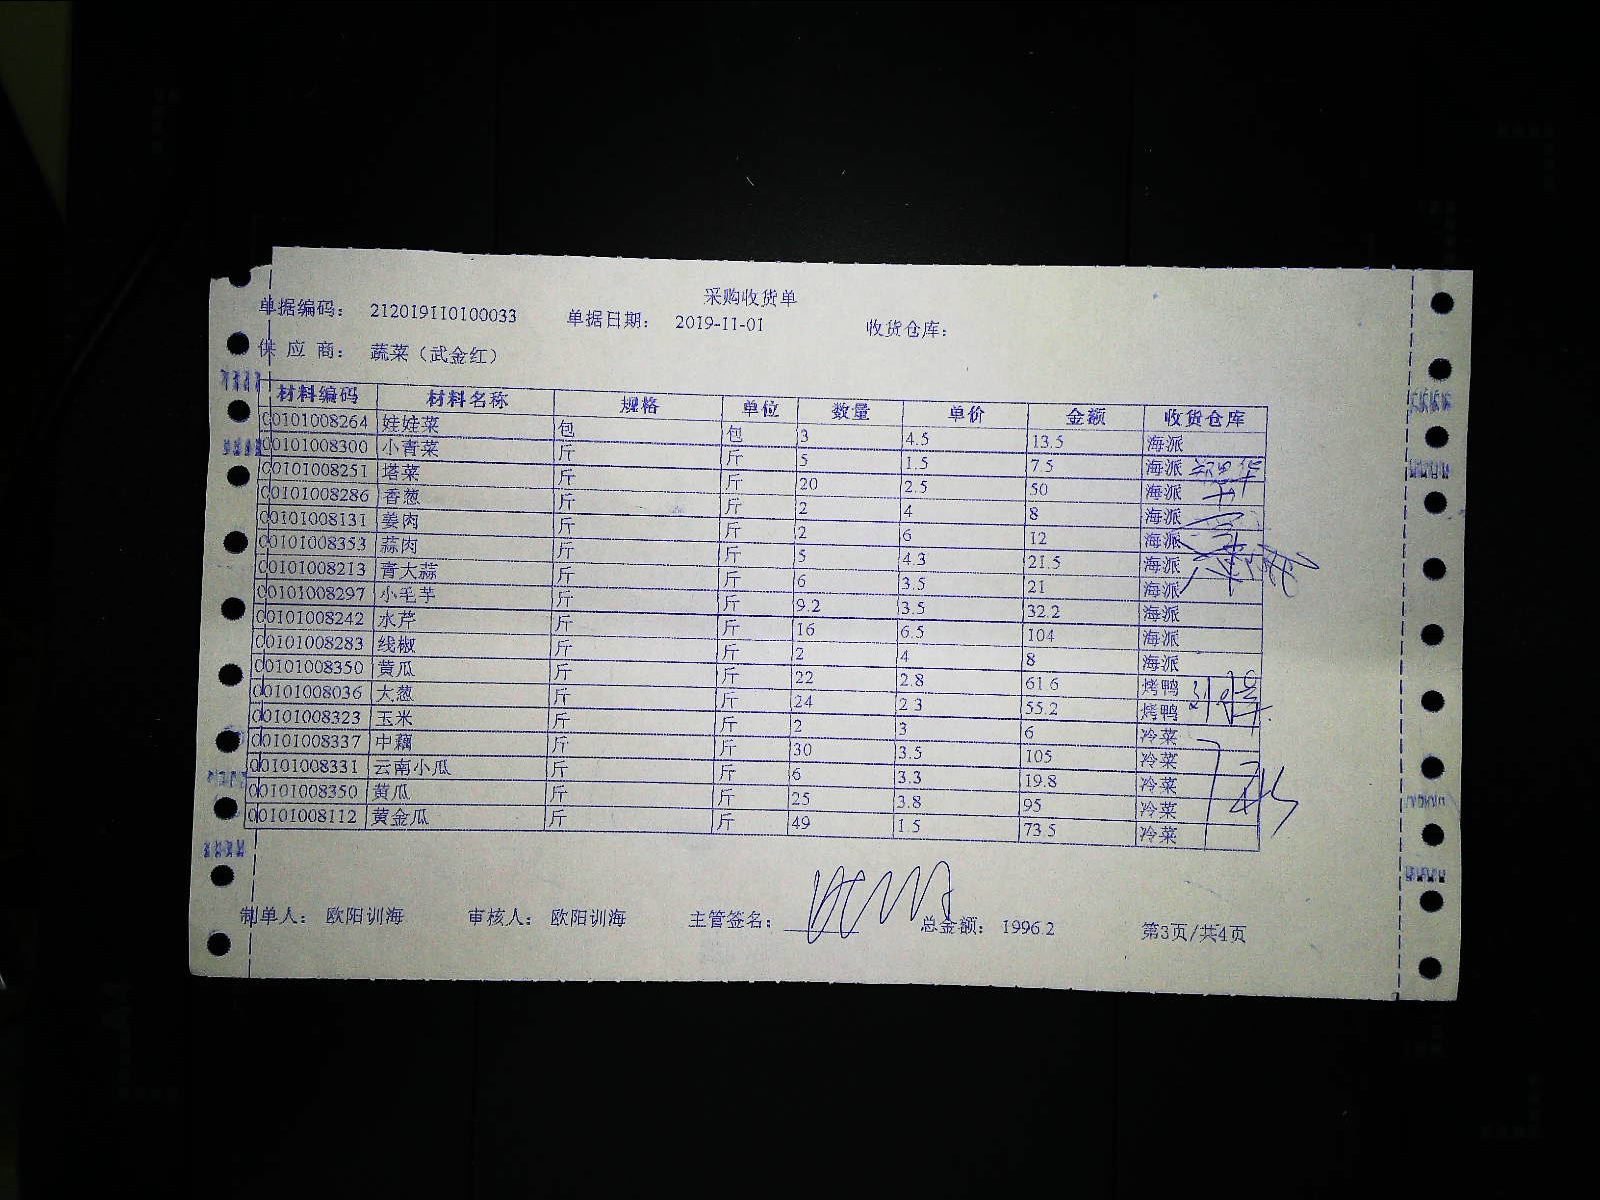 采购收货单
单据编码: 212019110100033 单据日期: 2019-11-01 收货仓库:
供 应 商: 蔬菜(武金红)
材料编码 材料名称 规格 单位 数量 单价 金额 收货仓库
00101008264 娃娃菜 包 包 3 4.5 13.5 海派
00101008300 小青菜 斤 斤 5 1.5 7.5 海派
00101008251 塔菜 斤 斤 20 2.5 50 海派
00101008286 香葱 斤 斤 2 4 8 海派
00101008131 姜肉 斤 斤 2 6 12 海派
00101008353 蒜肉 斤 斤 5 4.3 21.5 海派
00101008213 青大蒜 斤 斤 6 3.5 21 海派
00101008297 小毛芋 斤 斤 9.2 3.5 32.2 海派
00101008242 水芹 斤 斤 16 6.5 104 海派
00101008283 线椒 斤 斤 2 4 8 海派
00101008350 黄瓜 斤 斤 22 2.8 61.6 烤鸭
00101008036 大葱 斤 斤 24 2.3 55.2 烤鸭
00101008323 玉米 斤 斤 2 3 6 冷菜
00101008337 中藕 斤 斤 30 3.5 105 冷菜
00101008331 云南小瓜 斤 斤 6 3.3 19.8 冷菜
00101008350 黄瓜 斤 斤 25 3.8 95 冷菜
00101008112 黄金瓜 斤 斤 49 1.5 73.5 冷菜
制单人: 欧阳训海 审核人: 欧阳训海 主管签名: 总金额: 1996.2 第3页/共4页